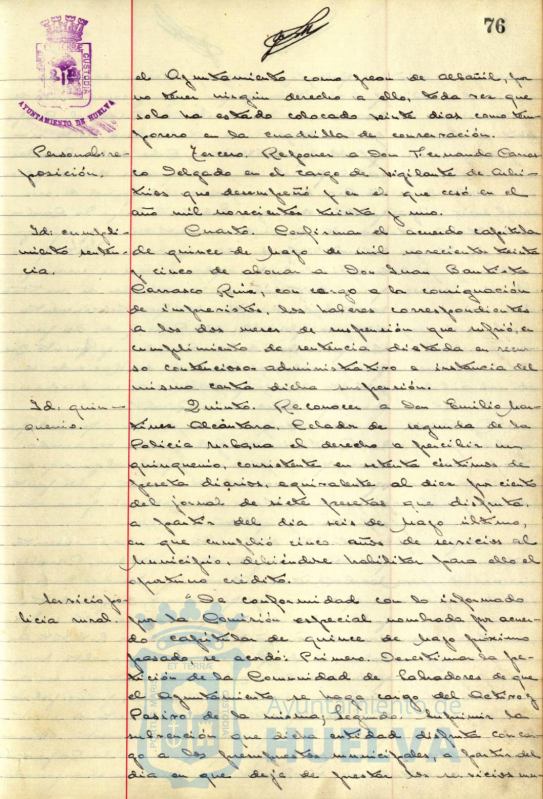 76
CUSTODIA
AYUNTAMIENTO DE HUELVA
el Ayuntamiento como peon de albañil, por
no tener ningún derecho a ello, toda vez que
solo ha estado colocado veinte dias como tem-
porero en la cuadrilla de conservación.
Personal: re-
posición.
Tercero. Reponer a Don Fernando Carras-
co Delgado en el cargo de vigilante de Arbi-
trios que desempeñó y en el que cesó en el
año mil novecientos treinta y uno.
Id: cumpli-
miento senten-
cia.
Cuarto. Confirmar el acuerdo capitular
de quince de Mayo de mil novecientos treinta
y cinco de abonar a Don Juan Bautista
Carrasco Ruiz, con cargo a la consignación
de imprevistos, los haberes correspondientes
a los dos meses de suspensión que sufrió, en
cumplimiento de sentencia dictada en recur-
so contencioso administrativo a instancia del
mismo contra dicha suspensión.
Id: quin-
quenio.
Quinto. Reconocer a Don Emilio Mar-
tínez Alcántara, Celador de segunda de la
Policia urbana el derecho a percibir un
quinquenio, consistente en setenta céntimos de
peseta diarios, equivalente al diez por ciento
del jornal de siete pesetas que disfruta,
a partir del dia seis de Mayo último,
en que cumplió cinco años de servicios al
Municipio, debiéndose habilitar para ello el
oportuno crédito.
Servicio po-
licia rural.
"De conformidad con lo informado
por la Comisión especial nombrada por acuer-
do capitular de quince de Mayo próximo
pasado se acordó: Primero. Desestimar la pe-
tición de la Comunidad de Labradores de que
el Ayuntamiento se haga cargo del Activo y
Pasivo de la misma; Segundo. Suprimir la
subvención que dicha entidad disfruta con car-
go a los presupuestos municipales, a partir del
dia en que deje de prestar los servicios mu-
ET TERRÆ
Ayuntamiento de
HUELVA